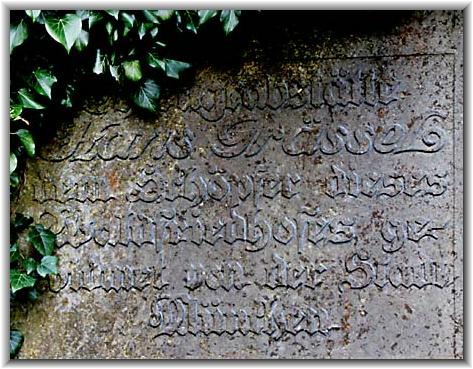 Hans Grässel
dem Schöpfer dieses
Waldfriedhofes, ge-
widmet von der Stadt
München.